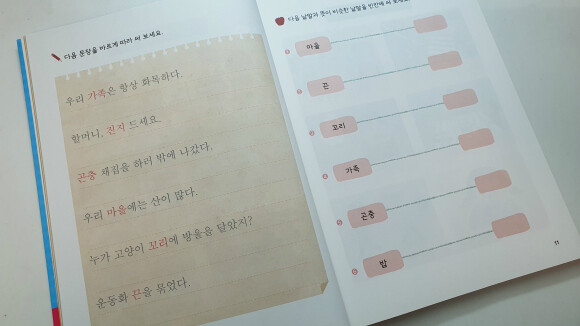 다음 문장을 바르게 따라 써 보세요.
우리 가족은 항상 화목하다.
할머니, 진지 드세요.
곤충 채집을 하러 밖에 나갔다.
우리 마을에는 산이 많다.
누가 고양이 꼬리에 방울을 달았지?
운동화 끈을 묶었다.
다음 낱말과 뜻이 비슷한 낱말을 빈칸에 써 보세요.
마을
끈
꼬리
가족
곤충
밥
11